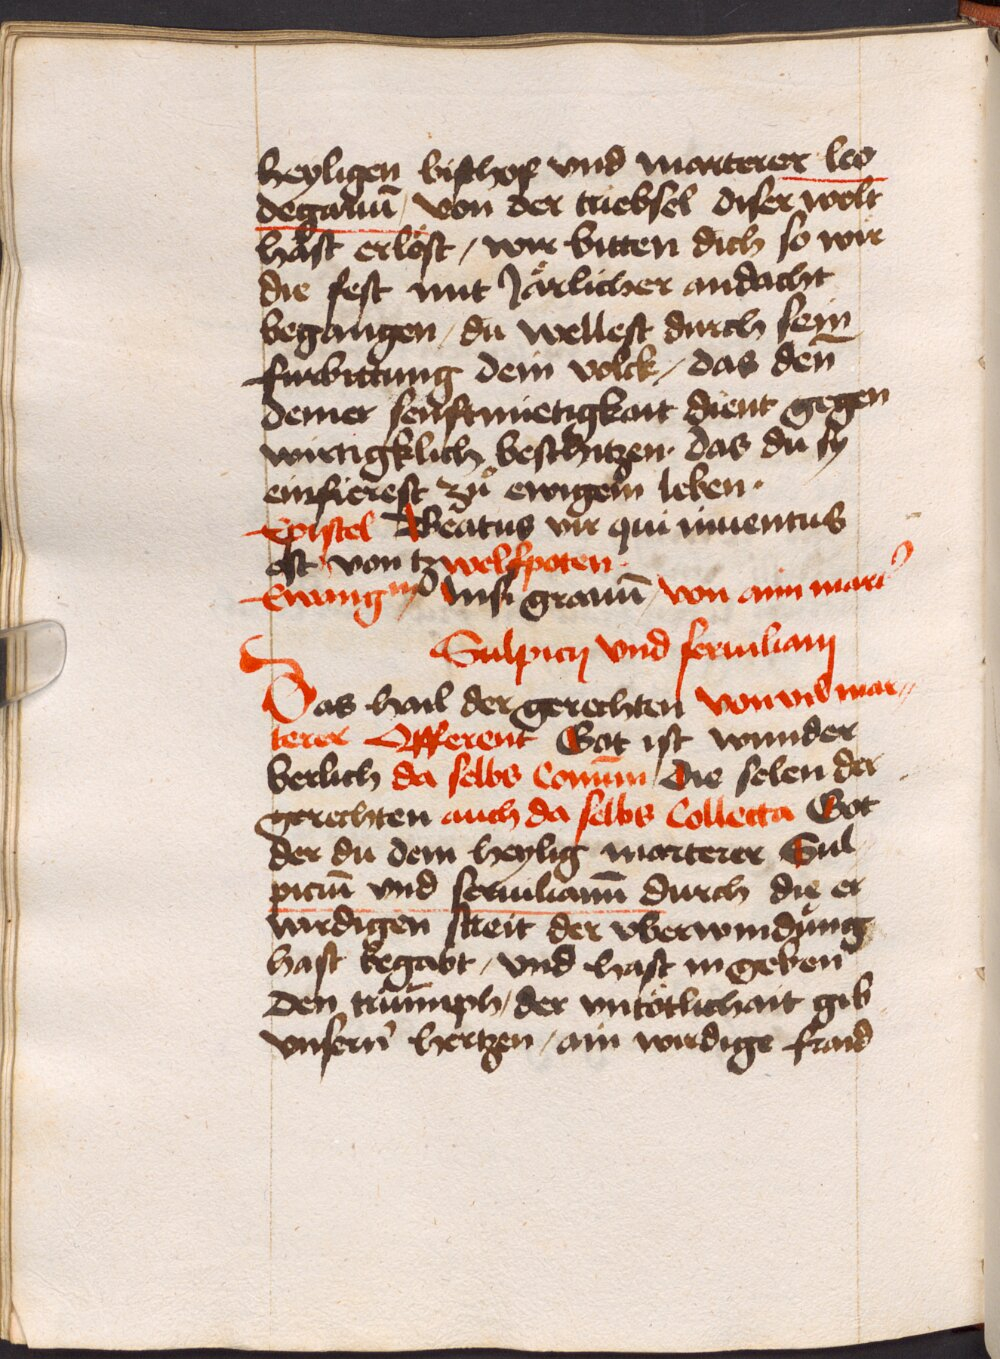 heyligen bischof vnd marterer leo
degariū / von der triebsel diser welt
hăst erlöst / wir bitten dich so wir
die fest mit Järlicher andacht
begangen / du wellest durch sein
furbittung dein volck / das den̄
deiner senftmietigkait dient gegen
wirtigklich beschitzen · das du sy
einfierest zů ewigem leben ·
Epistel Beatus vir qui inuentus
est von tzwelfpoten ·
Ewangm̄ Nisi granū / von aim mart
Sulpicij vnd seruiliani
Das hail der gerechten von vil mar„
terer Offerent Got ist wunder
berlich da selbs Comūn Die selen der
gerechten auch da selbs Collecta Got
der du dem heylig marterer Sul
piciū vnd seruilianū durch die er
wirdigen streit der vberwindung
hast begabt / vnd hast in geben
den triūmph / der vntötlichait gib
vnsern hertzen / ain wirdige fraid